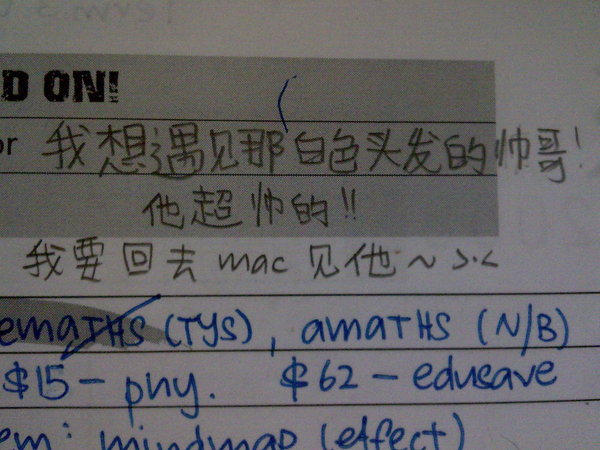 D ON!
or 我想遇见那白色头发的帅哥!
他超帅的!!
我要回去 mac 见他~ >.<
emaTHS (TYS), amaTHS (N/B)
$15 - phy. $62 - edusave
em: mindmap (effect)